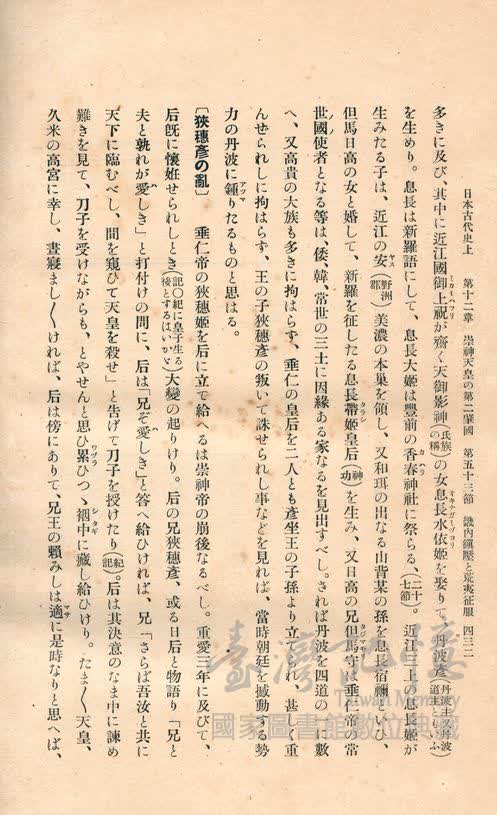 日本古代史上 第十二章 崇神天皇の第二肇國 第五十三節 畿內鎭壓と荒夷征服 四三二
多きに及び、其中に近江國御上祝が齋く天御影神(氏族の稱)の女息長水依姬を娶りて、丹波彥(丹波主又丹波道主ともいふ)
を生めり。息長は新羅語にして、息長大姬は豐前の香春神社に祭らる、(二十七節)。近江三上の息長姬が
生みたる子は、近江の安(野洲郡)美濃の本巢を領し、又和珥の出なる山背某の孫を息長宿禰といひ、
但馬日高の女と婚して、新羅を征したる息長帶姬皇后(神功)を生み、又日高の兄但馬守は垂仁帝の常
世國使者となる等は、倭、韓、常世の三土に因緣ある家なるを見出すべし。されば丹波を四道の一に數
へ、又高貴の大族も多きに拘はらず、垂仁の皇后を二人とも彥坐王の子孫より立てられ、甚しく重
んせられしに拘はらず、王の子狹穗彥の叛いて誅せられし事などを見れば、當時朝廷を撼動する勢
力の丹波に鍾りたるものと思はる。
〔狹穗彥の亂〕 垂仁帝の狹穗姬を后に立て給へるは崇神帝の崩後なるべし。重愛三年に及びて、
后旣に懷姙せられしとき(記〇紀に皇子生る後とするはいかゞ)大變の起りけり。后の兄狹穗彥、或る日后と物語り「兄と
夫と孰れが愛しき」と打付けの問に、后は「兄ぞ愛しき」と答へ給ひければ、兄「さらば吾汝と共に
天下に臨むべし、間を窺ひて天皇を殺せ」と告げて刀子を授けたり(紀記)。后は其決意のなま中に諫め
難きを見て、刀子を受けながらも、とやせんと思ひ累ひつゝ裀中に藏し給ひけり。たま〱天皇、
久米の高宮に幸し、晝寢まし〱ければ、后は傍にありて、兄王の賴みしは適に是時なりと思へば、
臺灣記憶
Taiwan Memory
國家圖書館數位典藏